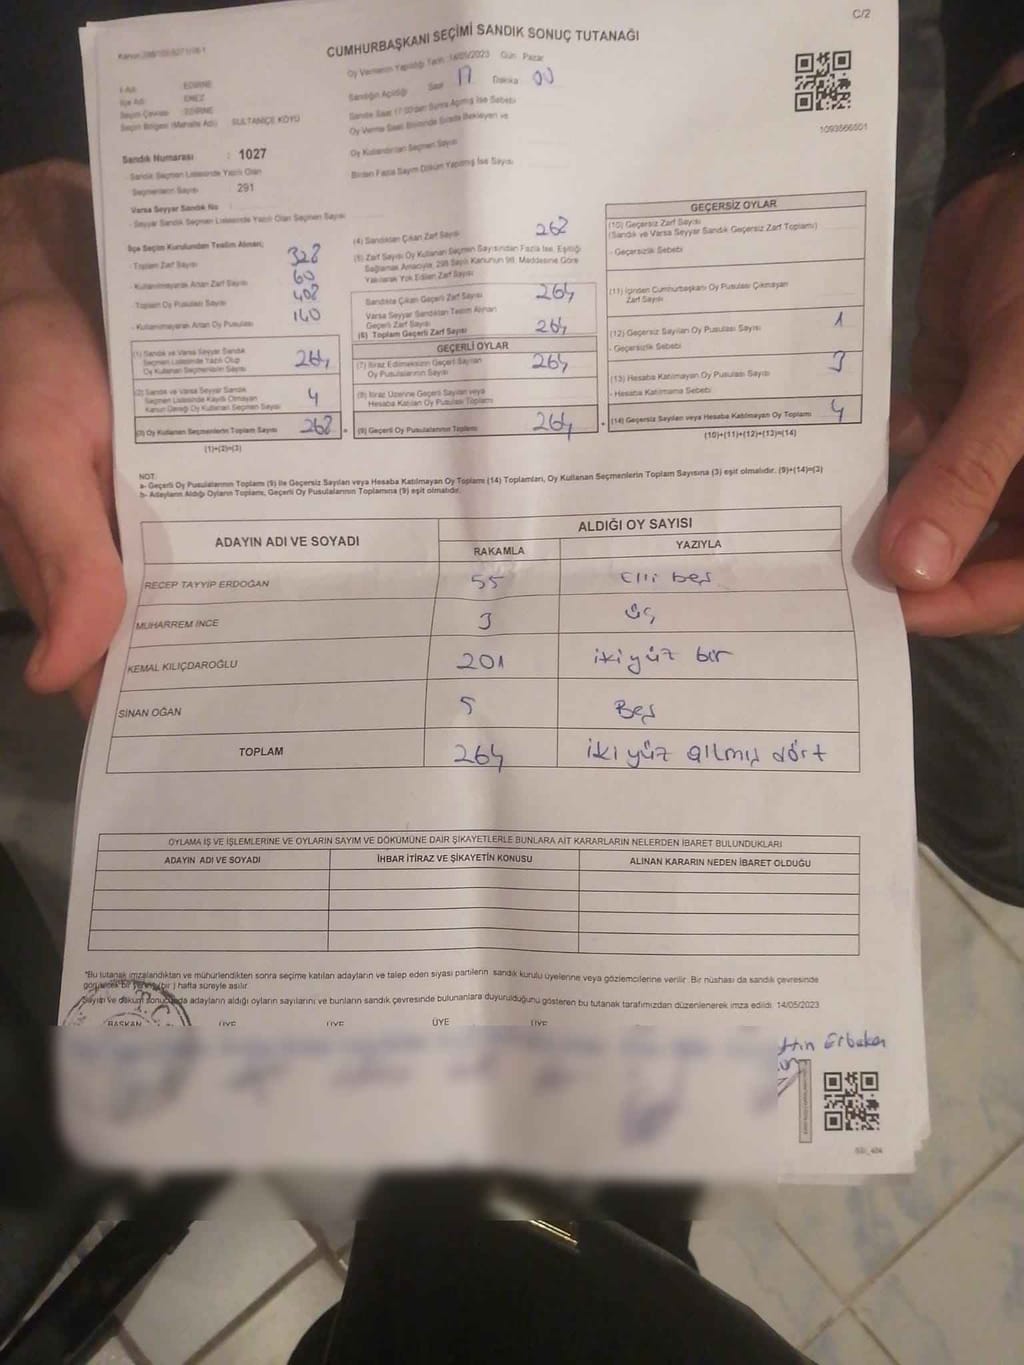 C/2
CUMHURBAŞKANI SEÇİMİ SANDIK SONUÇ TUTANAĞI
Oy Vermenin Yapıldığı Tarih 14/05/2023 Gün Pazar
Sandığın Açıldığı Saat 17 Dakika 00
Sandık Saat 17:00'dan Sonra Açılmış İse Sebebi
Oy Verme Saati Bitiminde Sırada Bekleyen ve
Oy Kullandırılan Seçmen Sayısı
Birden Fazla Sayım Döküm Yapılmış İse Sayısı
1093566501
İl Adı EDİRNE
İlçe Adı ENEZ
Seçim Çevresi EDİRNE
Seçim Bölgesi (Mahalle Adı) SULTANİÇE KÖYÜ
Sandık Numarası : 1027
- Sandık Seçmen Listesinde Yazılı Olan
Seçmenlerin Sayısı 291
Varsa Seyyar Sandık No
- Seyyar Sandık Seçmen Listesinde Yazılı Olan Seçmen Sayısı
İlçe Seçim Kurulundan Teslim Alınan;
- Toplam Zarf Sayısı 328
- Kullanılmayarak Artan Zarf Sayısı 60
- Toplam Oy Pusulası Sayısı 408
- Kullanılmayarak Artan Oy Pusulası 140
(1) Sandık ve Varsa Seyyar Sandık
Seçmen Listesinde Yazılı Olup
Oy Kullanan Seçmenlerin Sayısı 264
(2) Sandık ve Varsa Seyyar Sandık
Seçmen Listesinde Kayıtlı Olmayan
Kanun Gereği Oy Kullanan Seçmen Sayısı 4
(3) Oy Kullanan Seçmenlerin Toplam Sayısı 268
(1)+(2)=(3)
(4) Sandıktan Çıkan Zarf Sayısı 268
(5) Zarf Sayısı Oy Kullanan Seçmen Sayısından Fazla İse, Eşitliği
Sağlamak Amacıyla, 298 Sayılı Kanunun 98. Maddesine Göre
Yakılarak Yok Edilen Zarf Sayısı
Sandıkta Çıkan Geçerli Zarf Sayısı 264
Varsa Seyyar Sandıktan Teslim Alınan
Geçerli Zarf Sayısı
(6) Toplam Geçerli Zarf Sayısı 264
GEÇERLİ OYLAR
(7) İtiraz Edilmeksizin Geçerli Sayılan
Oy Pusulalarının Sayısı 264
(8) İtiraz Üzerine Geçerli Sayılan veya
Hesaba Katılan Oy Pusulası Toplamı
(9) Geçerli Oy Pusulalarının Toplamı 264
GEÇERSİZ OYLAR
(10) Geçersiz Zarf Sayısı
(Sandık ve Varsa Seyyar Sandık Geçersiz Zarf Toplamı)
- Geçersizlik Sebebi
(11) İçinden Cumhurbaşkanı Oy Pusulası Çıkmayan
Zarf Sayısı
(12) Geçersiz Sayılan Oy Pusulası Sayısı 1
- Geçersizlik Sebebi
(13) Hesaba Katılmayan Oy Pusulası Sayısı 3
- Hesaba Katılmama Sebebi
(14) Geçersiz Sayılan veya Hesaba Katılmayan Oy Toplamı 4
(10)+(11)+(12)+(13)=(14)
NOT:
a- Geçerli Oy Pusulalarının Toplamı (9) ile Geçersiz Sayılan veya Hesaba Katılmayan Oy Toplamı (14) Toplamları, Oy Kullanan Seçmenlerin Toplam Sayısına (3) eşit olmalıdır. (9)+(14)=(3)
b- Adayların Aldığı Oyların Toplamı, Geçerli Oy Pusulalarının Toplamına (9) eşit olmalıdır.
ADAYIN ADI VE SOYADI ALDIĞI OY SAYISI
RAKAMLA YAZIYLA
RECEP TAYYİP ERDOĞAN 55 Elli beş
MUHARREM İNCE 3 üç
KEMAL KILIÇDAROĞLU 201 iki yüz bir
SİNAN OĞAN 5 Beş
TOPLAM 264 iki yüz atlmış dört
OYLAMA İŞ VE İŞLEMLERİNE VE OYLARIN SAYIM VE DÖKÜMÜNE DAİR ŞİKAYETLERLE BUNLARA AİT KARARLARIN NELERDEN İBARET BULUNDUKLARI
ADAYIN ADI VE SOYADI İHBAR İTİRAZ VE ŞİKAYETİN KONUSU ALINAN KARARIN NEDEN İBARET OLDUĞU
"Bu tutanak imzalandıktan ve mühürlendikten sonra seçime katılan adayların ve talep eden siyasi partilerin sandık kurulu üyelerine veya gözlemcilerine verilir. Bir nüshası da sandık çevresinde
görülecek bir yere 1 (bir) hafta süreyle asılır.
Sayım ve döküm sonucunda adayların aldığı oyların sayılarını ve bunların sandık çevresinde bulunanlara duyurulduğunu gösteren bu tutanak tarafımızdan düzenlenerek imza edildi. 14/05/2023
BAŞKAN ÜYE ÜYE ÜYE ÜYE
ttin Erbakan